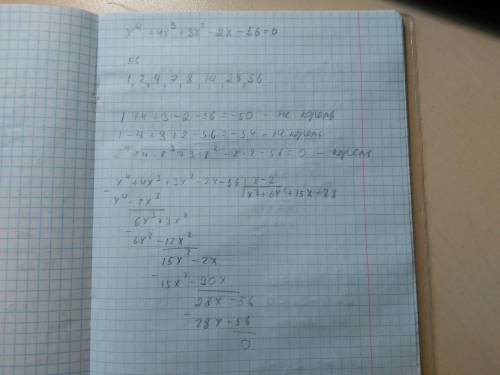 x⁴ + 4x³ + 3x² - 2x - 56 = 0
56
1, 2, 4, 7, 8, 14, 28, 56
1 + 4 + 3 - 2 - 56 = -50 - не корень
1 - 4 + 3 + 2 - 56 = -54 - не корень
2⁴ + 4 · 2³ + 3 · 2² - 2 · 2 - 56 = 0 - корень
x⁴ + 4x³ + 3x² - 2x - 56 | x - 2
x⁴ - 2x³ | x³ + 6x² + 15x + 28
6x³ + 3x²
6x³ - 12x²
15x² - 2x
15x² - 30x
28x - 56
28x + 56
0